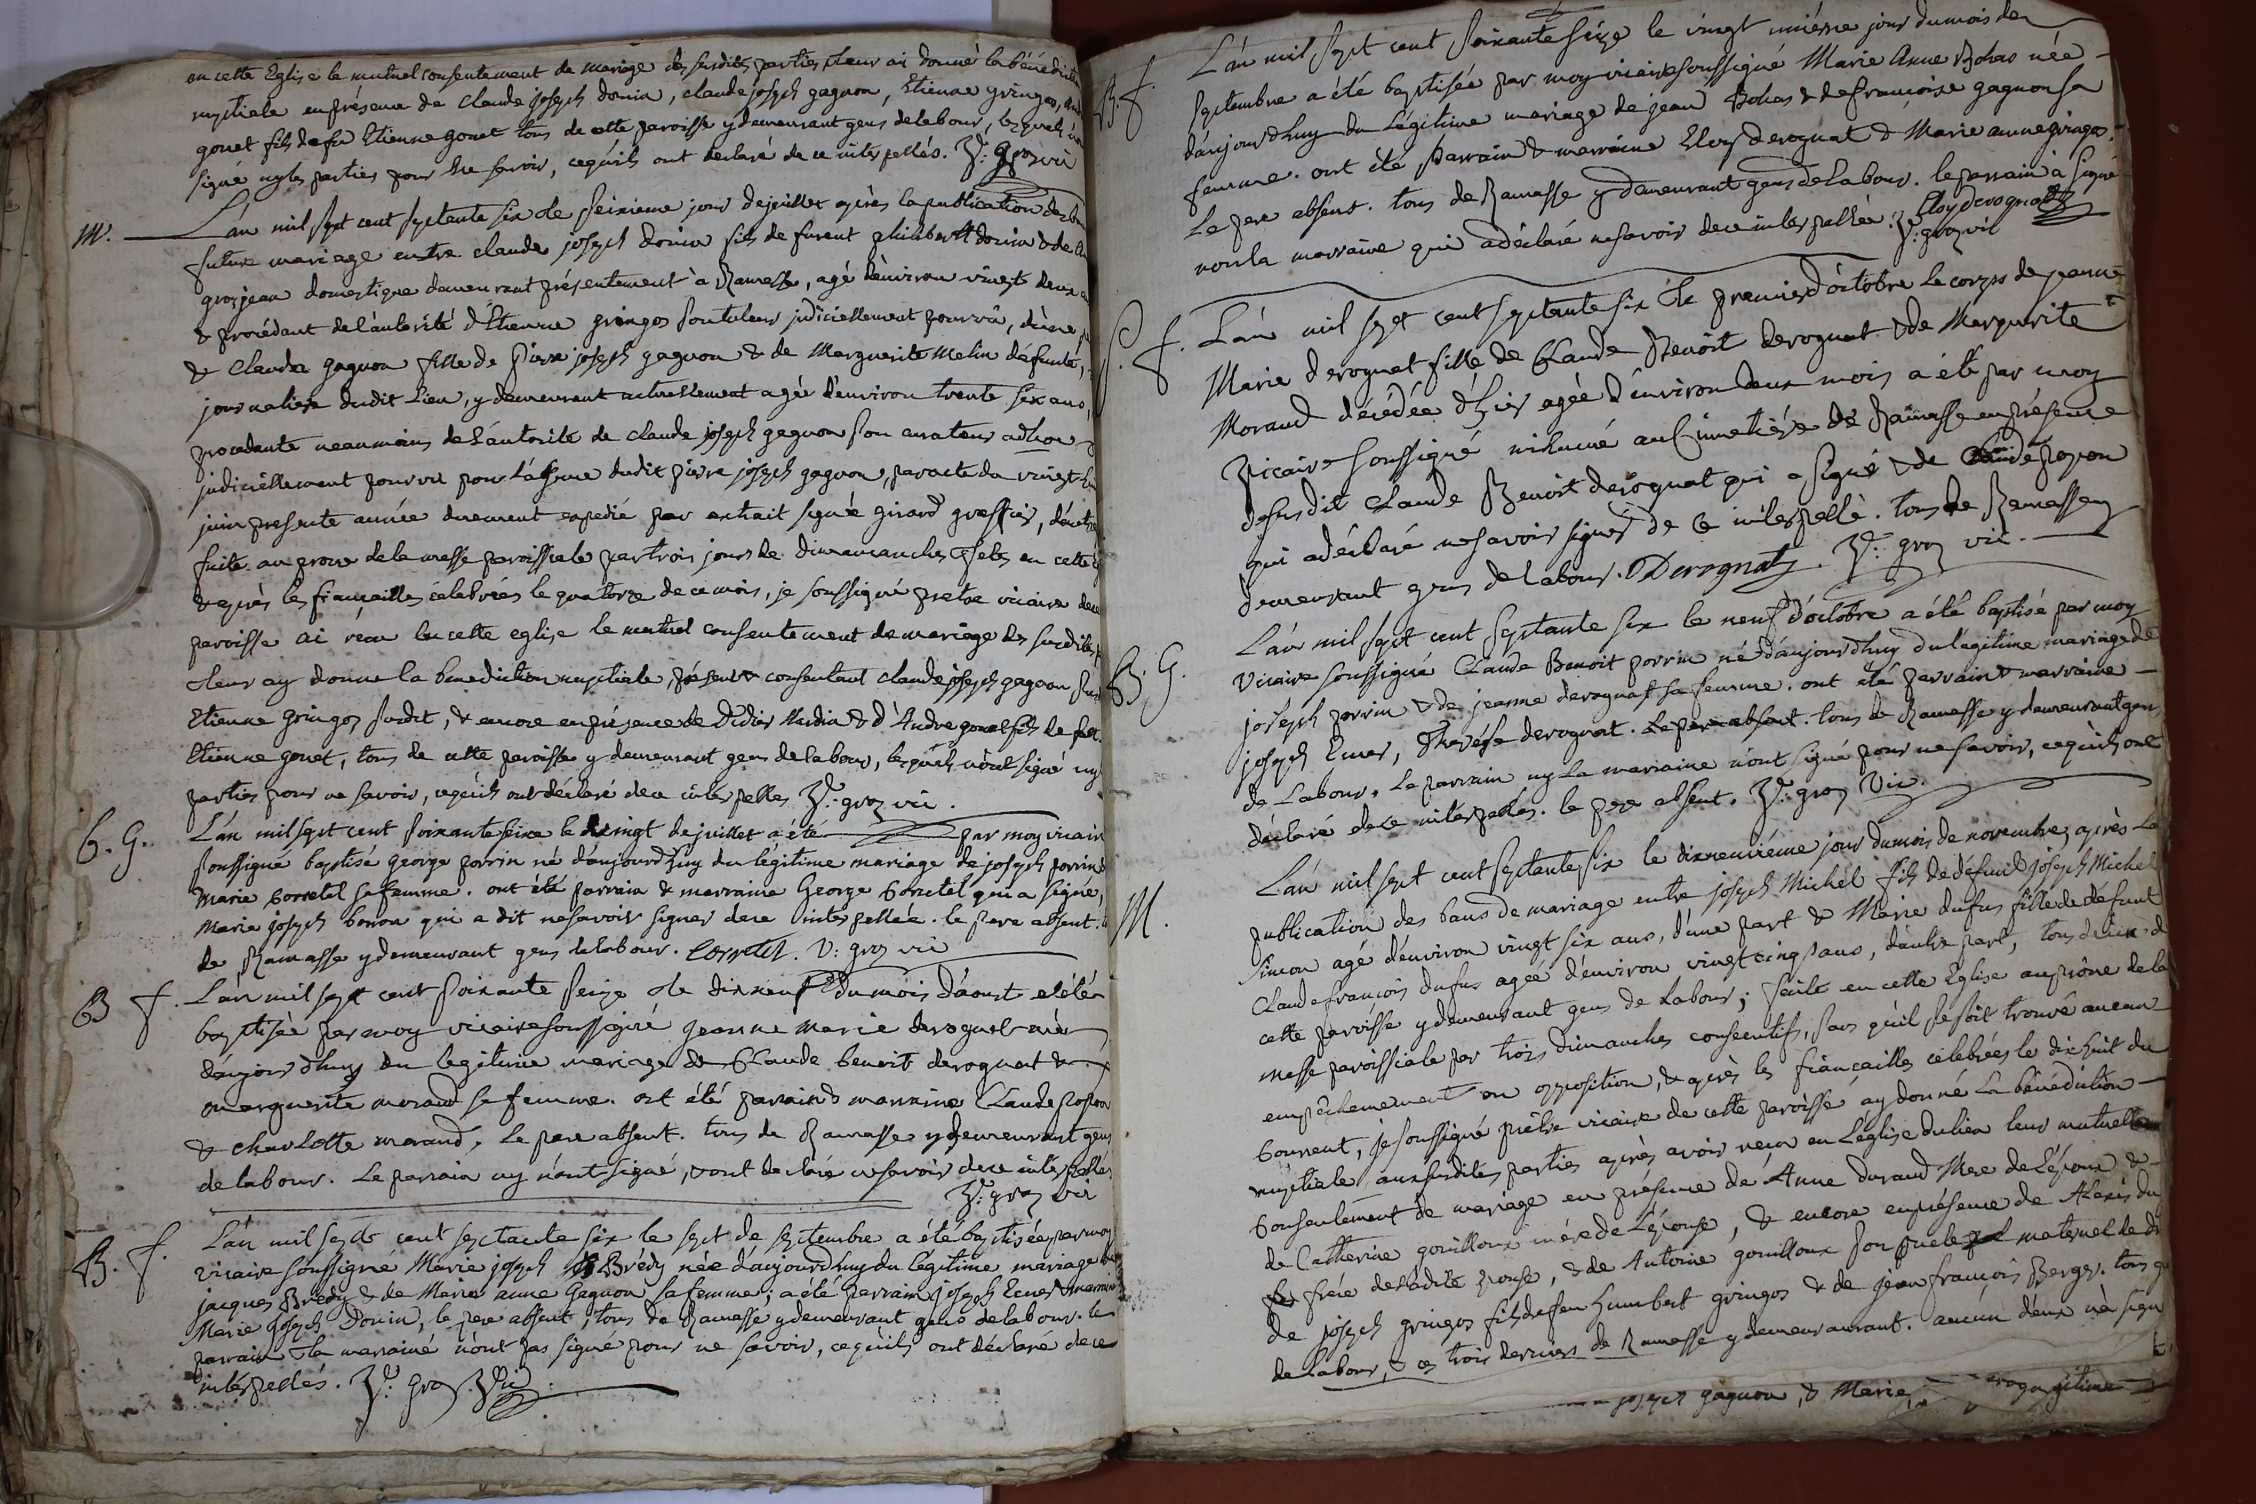 en cette Eglise le mutuel consentement de mariage des susdites parties & leur ai donné la bénédiction
nuptiale en présence de claude joseph donin, claude joseph gagnon, Etienne gringoz,
gonet fils de feu Etienne gonet tous de cette paroisse y demeurant gens de labour, lesquels
signé ny les parties pour ne savoir, ce qu'ils ont declaré de ce interpellés. V: groz vic
M. L'an mil sept cent septante six & le seizieme jour de juillet après la publication des
futur mariage entre claude joseph donin fils de furent philibert donin & de
grosjean domestique demeurant présentement à Ramasse, agé d'environ vingt deux
& procédant de l'autorité d'Etienne gringoz son tuteur judiciellement pourvu, d'une
& Clauda gagnon fille de Pierre joseph gagnon & de Marguerite Melin défunte,
journaliere dudit Lieu, y demeurant actuellement agée d'environ trente six ans,
procedante neanmoins de l'autorité de claude joseph gagnon son curateur
judiciellement pourvu pour l'absence dudit pierre joseph gagnon, par acte du vingt
juin presente année duement expedié par extrait signé girard greffier,
faite au prone de la messe paroissiale par trois jours de dimancanches & fetes en cette
& après les fiançailles célebrées le quatorze de ce mois, je soussigné pretre vicaire de
paroisse ai réçu en cette eglise le mutuel consentement de mariage des susdites
& leur ay donné la benediction nuptiale, présent & consentant claude joseph gagnon
Etienne gringoz susdit, & encore en présence de Didier & d'André gonet fils de feu
Etienne gonet, tous de cette paroisse y demeurant gens de labour, lesquels n'ont signé ny
parties pour ne savoir, ce qu'ils ont déclaré de ce interpellés V: groz vic.
b. G. L'an mil sept cent soixante seize le vingt de juillet a été par moy vicaire
soussigné baptisé george porrin né d'aujourd'huy du légitime mariage de joseph porrin
Marie corretel sa femme. ont été parrain & marraine George corretel qui a signé,
Marie joseph bonon qui a dit ne savoir signer de ce interpellée. le pere absent.
de Ramasse y demeurant gens de labour. Corretel. V: groz vic
B f. L'an mil sept cent soixante seize & le dixneuf du mois d'aoust a été
baptisée par moy vicaire soussigné jeanne marie derognat née
d'aujourd'huy du legitime mariage de Claude benoit derognat &
marguerite morand sa femme. ont été parrain & marraine Claude
& charlotte morand, le pere absent. tous de Ramasse y demeurant gens
de labour. Le parrain ny n'ont signé, & ont declaré ne savoir de ce interpellés.
V: groz vic
B. f. L'an mil sept cent septante six le sept de septembre a été baptisée par moy
vicaire soussigné Marie joseph Brédy née d'aujourd'huy du légitime mariage
jacques Bredy & de Marie anne Gagnon sa femme; a été parrain joseph & marraine
Marie joseph Donin, le pere absent, tous de Ramasse y demeurant gens de labour. le
parrain & la marraine n'ont pas signé pour ne savoir, ce qu'ils ont déclaré de ce
interpellés. V: groz. Vic.
B. f. L'an mil sept cent soixante seize le vingt uniéme jour du mois de
septembre a été baptisée par moy vicaire soussigné Marie Anne Bohas née
d'aujourd'huy du Légitime mariage de jean Bohas & de françoise gagnon sa
femme. ont été Parrain & marraine Eloy derognat & Marie anne gringoz.
Le pere absent. tous de Ramasse y demeurant gens de labour. le parrain à signé
non la marraine qui a déclaré ne savoir de ce interpellée. V: groz vic Eloy derognat
S. f. L'an mil sept cent septante six & le premier d'octobre le corps de jeanne
Marie derognat fille de Claude Benoit derognat & de Marguerite
Morand décédée d'hier agée d'environ deux mois a été par moy
Vicaire soussigné inhumé au Cimetiére de Ramasse en présence
du susdit Claude Benoit derognat qui a signé & de Claude
qui a déclaré ne savoir signer de ce interpellé. tous de Ramasse
demeurant gens de labour. Derognat. V: groz vic.
B. G. L'an mil sept cent septante six le neuf d'octobre a été baptisé par moy
Vicaire soussigné Claude Benoit porrin né d'aujourd'huy du légitime mariage de
joseph porrin & de jeanne derognat sa femme. ont été parrain & marraine
joseph, Therése derognat. Le pere absent. tous de Ramasse y demeurant gens
de Labour. Le parrain ny La marraine n'ont signé pour ne savoir, ce qu'ils ont
déclaré de ce interpellés. le pere absent. V: groz Vic.
M. L'an mil sept cent septante six le dixneuviéme jour du mois de novembre, après la
publication des bans de mariage entre joseph Michel fils de défunt joseph Michel
Simon agé d'environ vingt six ans, d'une part & Marie dufus fille de défunt
Claude françois dufus agée d'environ vingt cinq ans, d'autre part, tous deux de
cette paroisse y demeurant gens de Labour; faite en cette Eglise au prône de la
messe paroissiale par trois dimanches consecutifs, sans qu'il se soit trouvé aucun
empêchement ou opposition, & après les fiançailles célebrées le dixhuit du
Courrent, je soussigné prêtre vicaire de cette paroisse ay donné la bénédiction
nuptiale aux susdites parties après avoir reçu en L'église du lieu leur mutuel
Consentement de mariage en présence de Anne durand Mere de L'époux &
de Catherine gouilloux mére de L'épouse, & encore en présence de Alexis du
frére de ladite épouse, & de Antoine gouilloux son maternel
de joseph gringoz fils de feu humbert gringoz & de jean françois Berger. tous
de labour, & ces trois derniers de Ramasse y demeurant. aucun d'eux n'a signé
joseph gagnon, & Marie